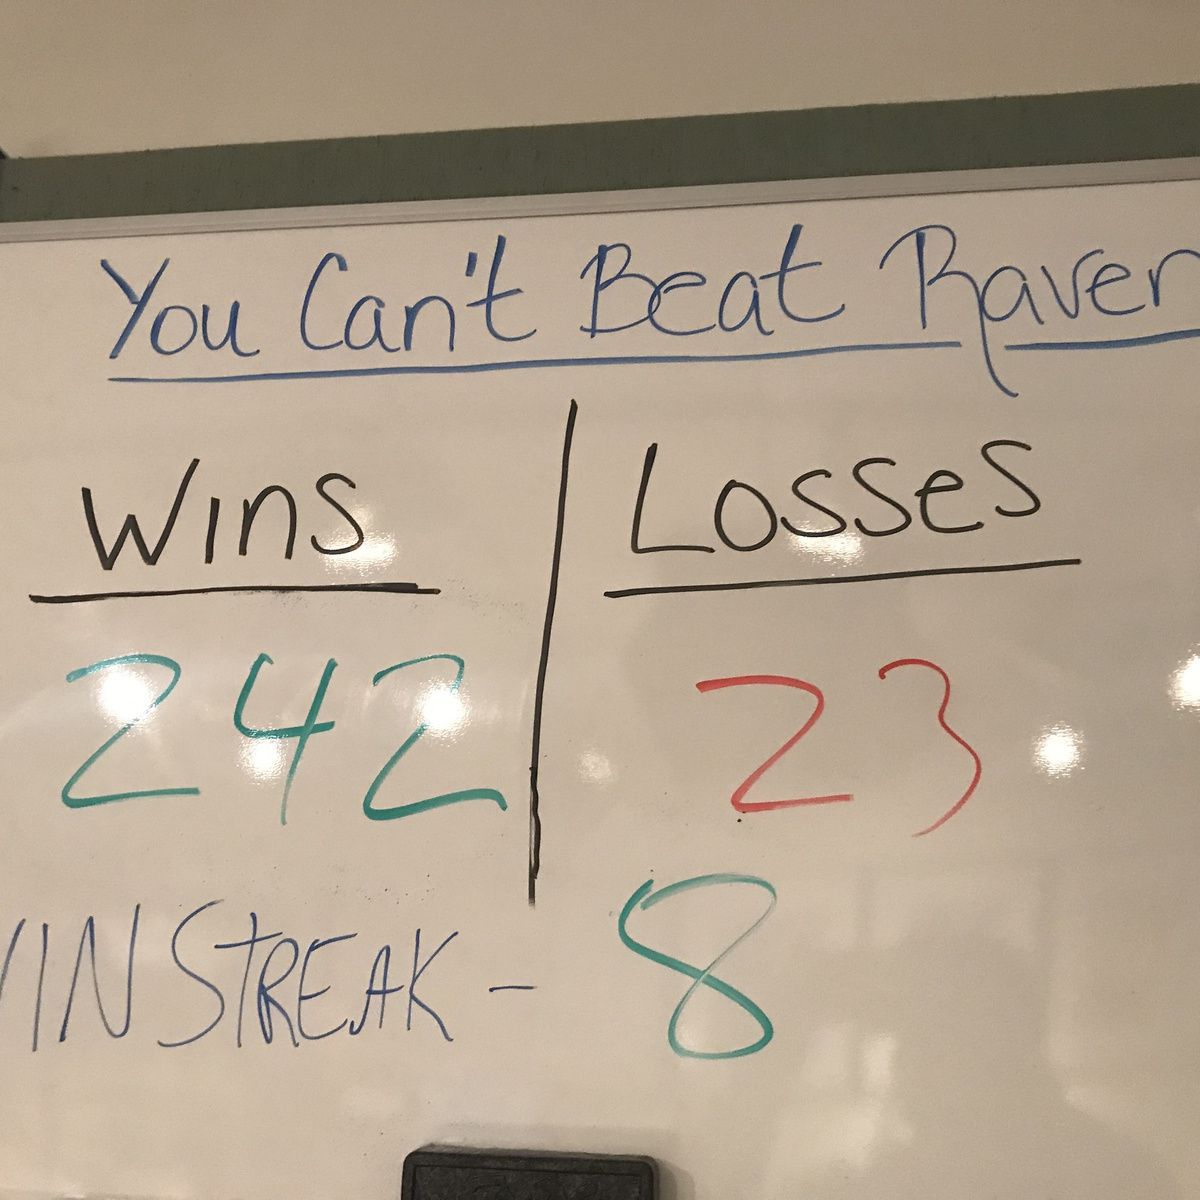 You Can't Beat Raven
Wins Losses
242 23
WIN STREAK - 8